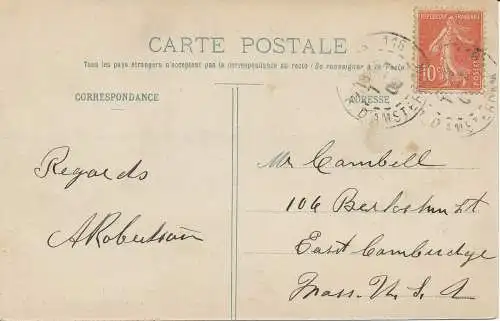 CARTE POSTALE
Tous les pays étrangers n'acceptent pas la correspondance au recto (Se renseigner à la Poste)
CORRESPONDANCE
ADRESSE
REPUBLIQUE FRANÇAISE
10c
POSTES
Regards
ARobertson
Mr Cambell
106 Berkshire St
East Cambridge
Mass. U. S. A